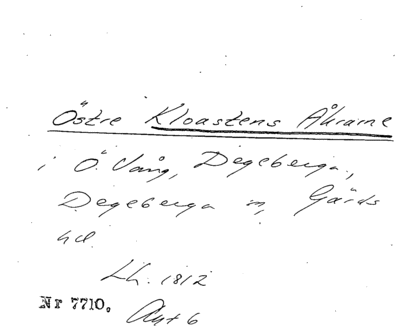 Östre Kloastens Åkrarne
i Ö. Vång, Degeberga,
Degeberga sn, Gärds
hd.
Lh. 1812
Nr 7710. Akt 6